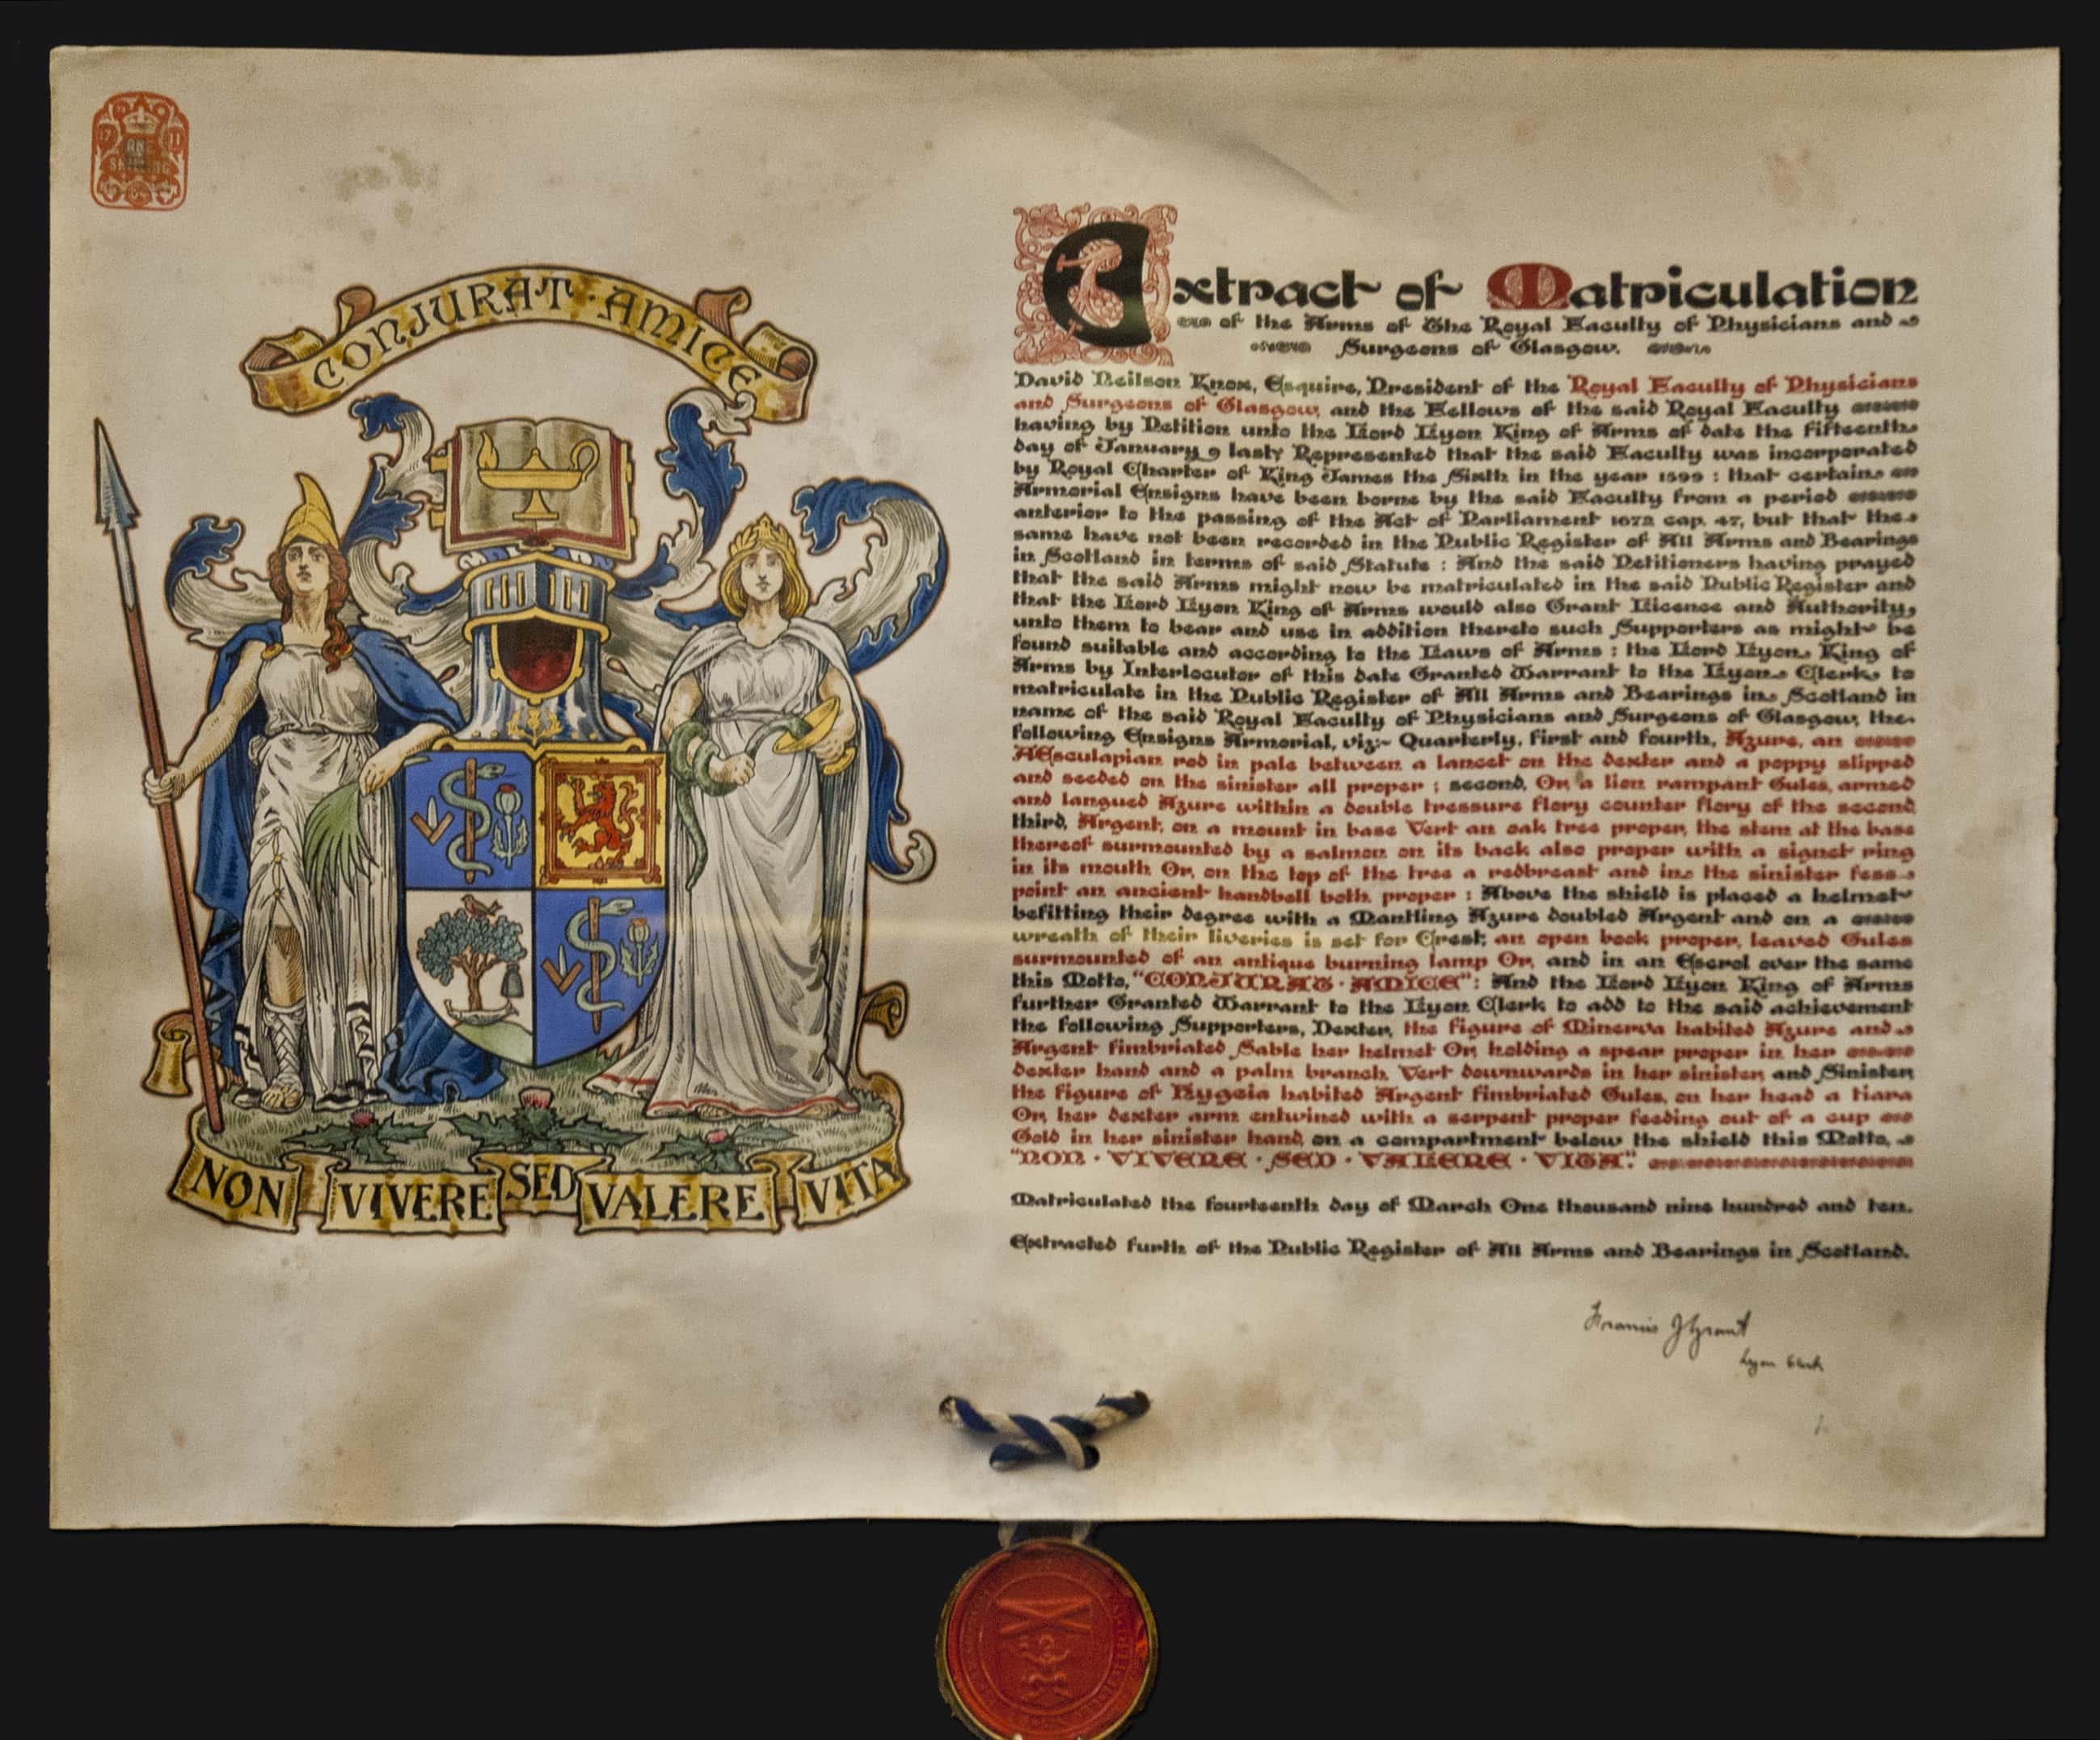 17 11
ONE
SHILLING
CONJURAT · AMICE
NON VIVERE SED VALERE VITA
Extract of Matriculation
of the Arms of The Royal Faculty of Physicians and
Surgeons of Glasgow.
David Neilson Knox, Esquire, President of the Royal Faculty of Physicians
and Surgeons of Glasgow, and the Fellows of the said Royal Faculty
having by Petition unto the Lord Lyon King of Arms of date the fifteenth
day of January last, Represented that the said Faculty was incorporated
by Royal Charter of King James the Sixth in the year 1599 : that certain
Armorial Ensigns have been borne by the said Faculty from a period
anterior to the passing of the Act of Parliament 1672 cap. 47, but that the
same have not been recorded in the Public Register of All Arms and Bearings
in Scotland in terms of said Statute : And the said Petitioners having prayed
that the said Arms might now be matriculated in the said Public Register and
that the Lord Lyon King of Arms would also Grant Licence and Authority,
unto them to bear and use in addition thereto such Supporters as might be
found suitable and according to the Laws of Arms : the Lord Lyon King of
Arms by Interlocutor of this date Granted Warrant to the Lyon Clerk to
matriculate in the Public Register of All Arms and Bearings in Scotland in
name of the said Royal Faculty of Physicians and Surgeons of Glasgow, the
following Ensigns Armorial, viz:- Quarterly, first and fourth, Azure, an
AEsculapian rod in pale between a lancet on the dexter and a poppy slipped
and seeded on the sinister all proper ; second, Or, a lion rampant Gules, armed
and langued Azure within a double tressure flory counter flory of the second,
third, Argent, on a mount in base Vert an oak tree proper, the stem at the base
thereof surmounted by a salmon on its back also proper with a signet ring
in its mouth Or, on the top of the tree a redbreast and in the sinister fess
point an ancient handbell both proper : Above the shield is placed a helmet
befitting their degree with a Mantling Azure doubled Argent and on a
wreath of their liveries is set for Crest, an open book proper, leaved Gules
surmounted of an antique burning lamp Or, and in an Escrol over the same
this Motto, "CONJURAT · AMICE" : And the Lord Lyon King of Arms
further Granted Warrant to the Lyon Clerk to add to the said achievement
the following Supporters, Dexter, the figure of Minerva habited Azure and
Argent fimbriated Sable her helmet Or, holding a spear proper in her
dexter hand and a palm branch Vert downwards in her sinister, and Sinister,
the figure of Hygeia habited Argent fimbriated Gules, on her head a tiara
Or, her dexter arm entwined with a serpent proper feeding out of a cup
Gold in her sinister hand, on a compartment below the shield this Motto,
"NON · VIVERE · SED · VALERE · VITA".
Matriculated the fourteenth day of March One thousand nine hundred and ten.
Extracted furth of the Public Register of All Arms and Bearings in Scotland.
Francis J Grant
Lyon Clerk